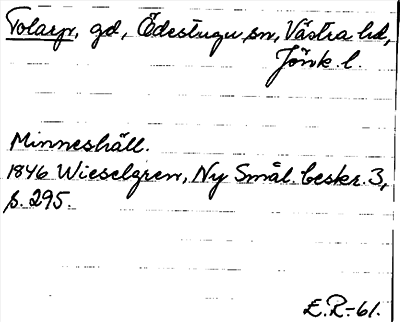 Tolarp, gd, Ödestugu sn, Västra hd,
Jönk. l.
Minneshäll.
1846 Wieselgren, Ny Smål. beskr. 3,
s. 295.
E.R.-61.